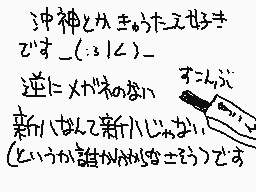 沖神とか きゅうたえ好き
です_(:3 |<)_
逆にメガネのない
すこんぶ
新八なんて新八じゃない
(というか誰かわからなさそう)です